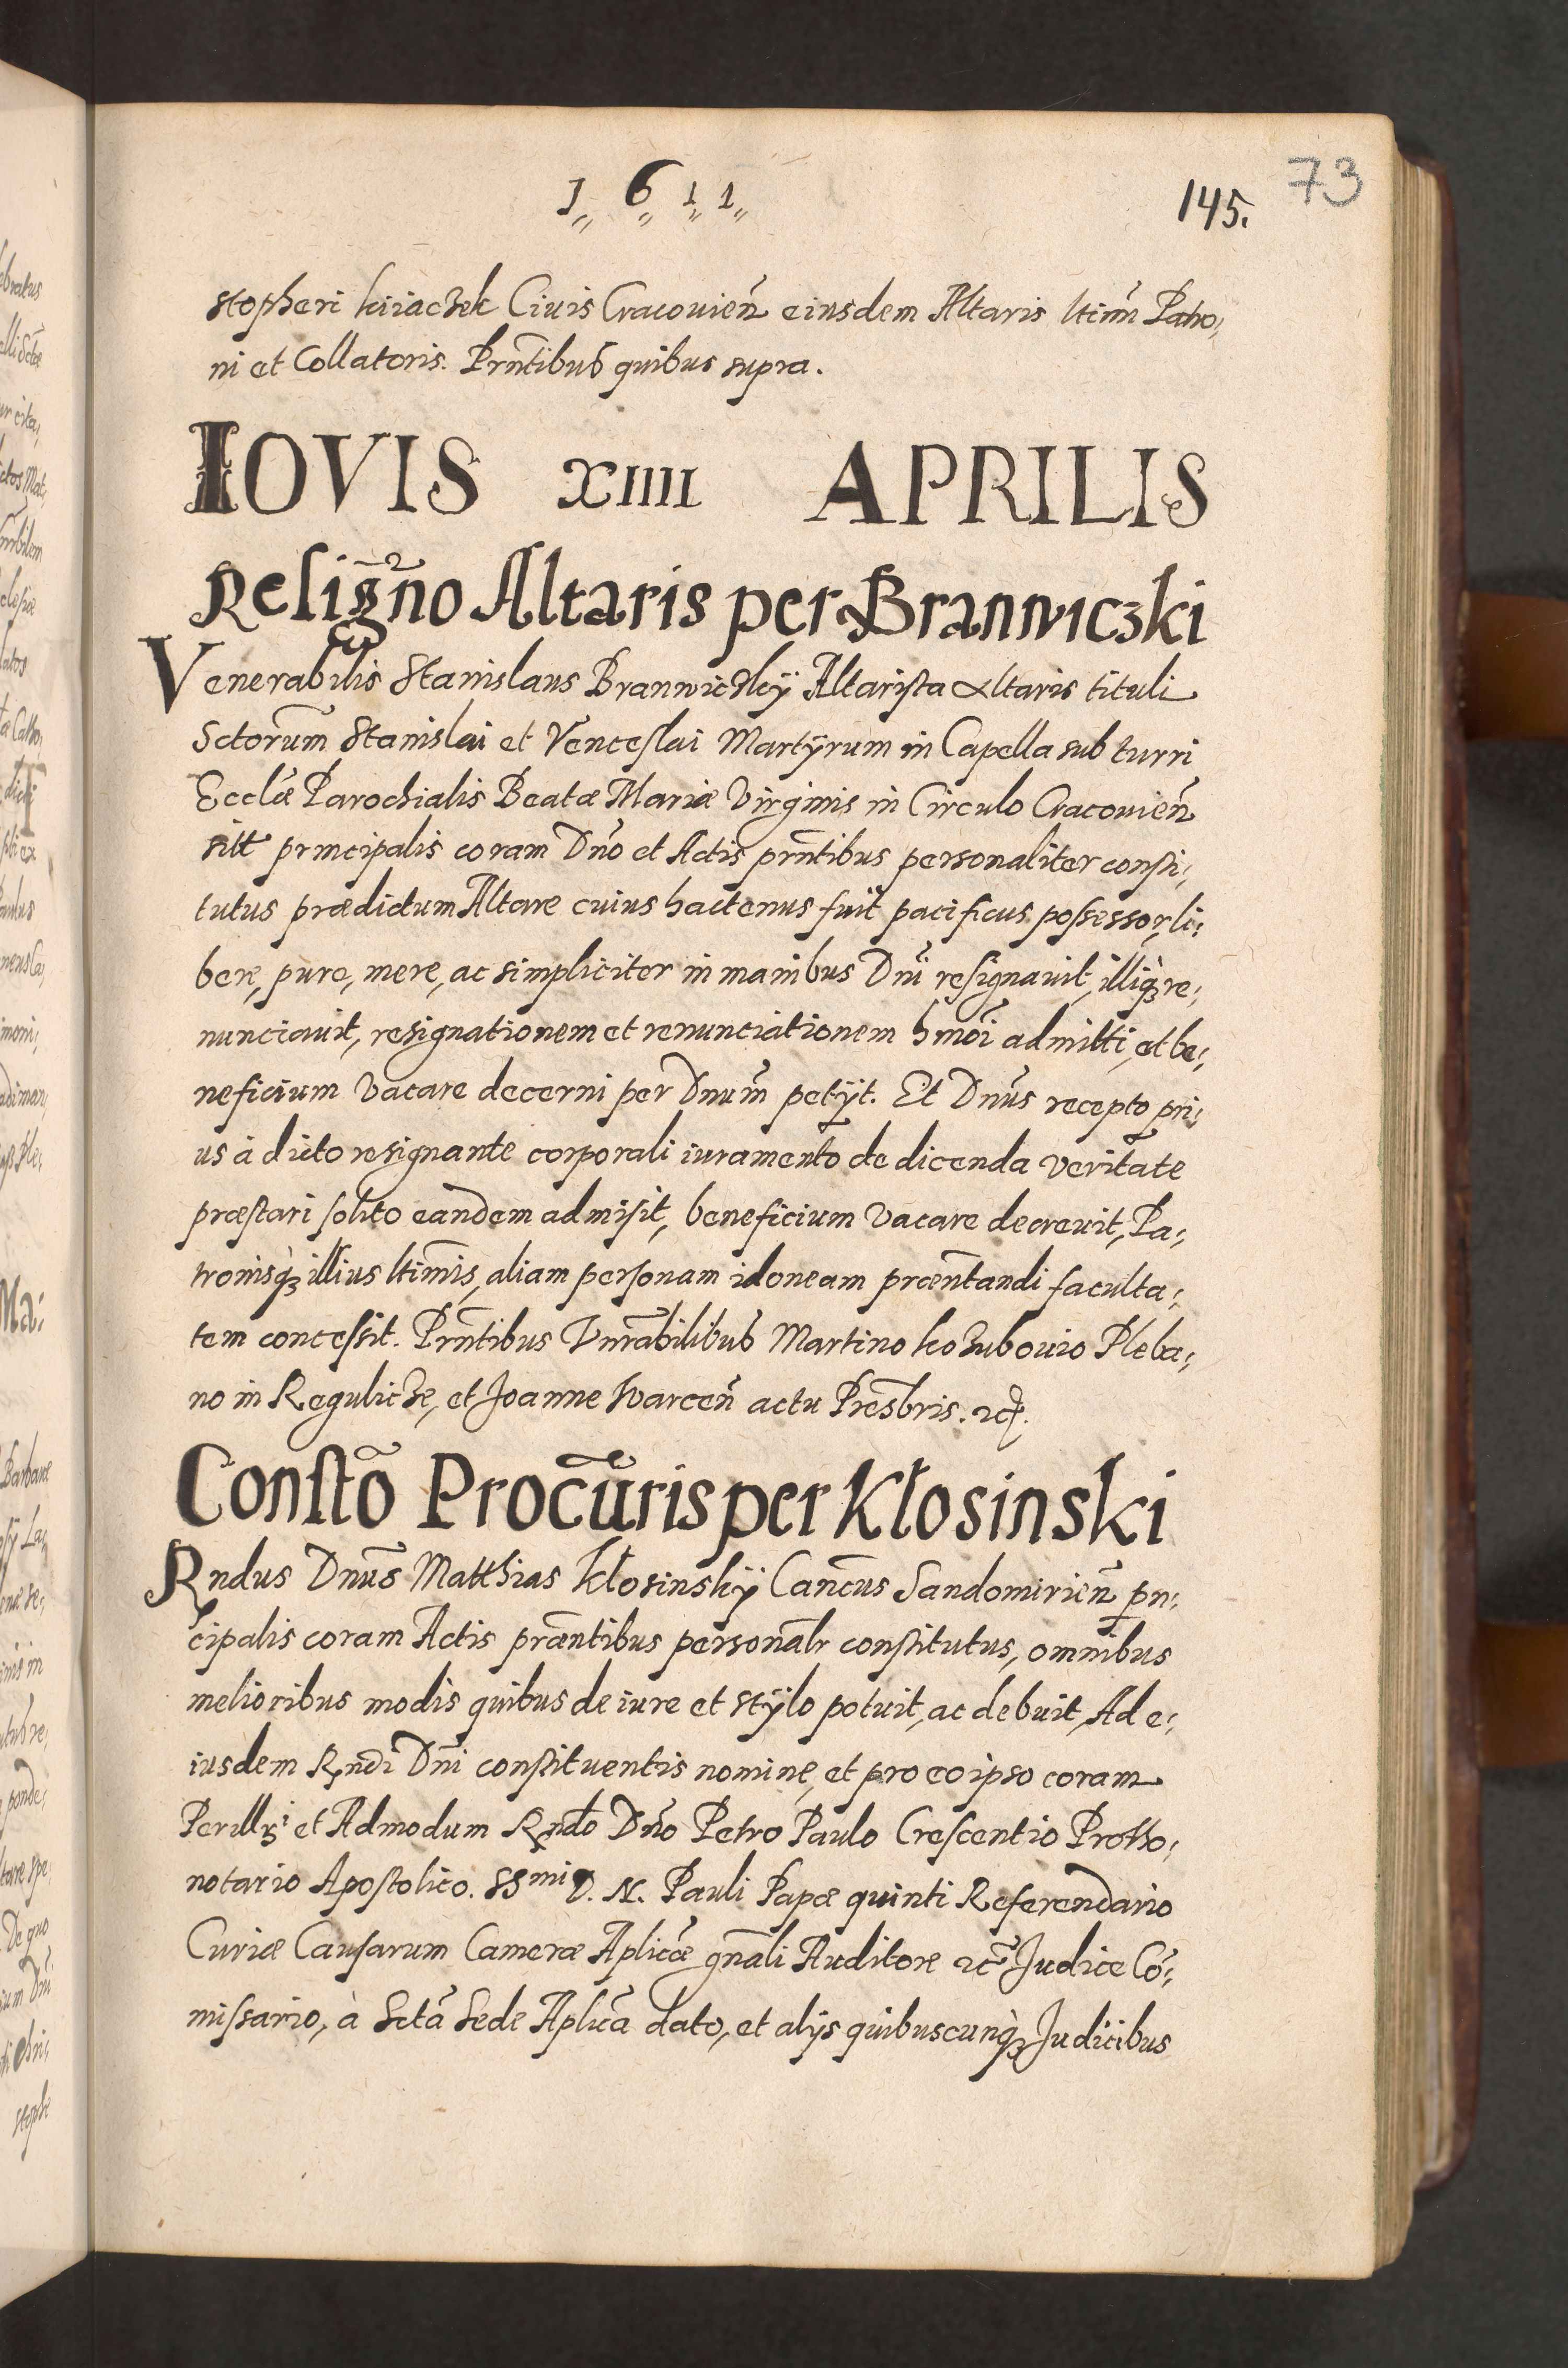 1611
145.
73
stopheri kiiaczek Ciuis Cracouien̄ eiusdem Altaris ltimi Patro:
ni et Collatoris. Prn̄tibus quibus supra.
IOVIS XIIII APRILIS
Resig̃no Altaris per Branwiczki
Venerabilis Stanislaus Branwiczkÿ Altarista Altaris tituli
Sctorum̄ Stanislai et Venceslai Martÿrum in Capella sub turri
Eccl̄æ Parochialis Beatæ Mariæ Virginis in Circulo Cracouien̄
sitt principalis coram Dn̄o et Actis prn̄tibus personaliter consti:
tutus prædictum Altare cuius hactenus fuit pacificus possessor, li:
bere, pure, mere, ac simpliciter in manibus Dn̄i resignauit, illiq̀ꝫ re:
nunciauit, resignationem et renunciationem hmōi admitti, et be:
neficium vacare decerni per Dnum̄ petÿt. Et Dnūs recepto pri:
us à dicto resignante corporali iuramento de dicenda veritate
præstari solito eandem admisit, beneficium vacare decreuit, Pa:
tronisq̀ꝫ illius ltimīs, aliam personam idoneam præn̄tandi faculta:
tem concessit. Prn̄tibus Vnrābilibus Martino kozubouio Pleba:
no in Regulicze, et Joanne Warcen̄ actu Presb̄ris. ꝛc̄.
Constõ Procūris per Kłosinski
Rndus Dnūs Matthias kłosinskÿ Can̄cus Sandomirien̄ pn:
cipalis coram Actis prǣntibus personalr̄ constitutus, omnibus
melioribus modis quibus de iure et stÿlo potuit, ac debuit, Ad e:
iusdem Rndi Dn̄i constituentis nomine, et pro eo ipso coram
Perillri et Admodum Rndo Dn̄o Petro Paulo Crescentio Protho:
notario Apostolico. SSmi D. N. Pauli Papæ quinti Referendario
Curiæ Causarum Cameræ Aplicǣ gn̄ali Auditore ꝛc̄ Judice Cō:
missario, à Sctā Sede Aplicā dato, et alijs quibuscunq̀ꝫ Judicibus